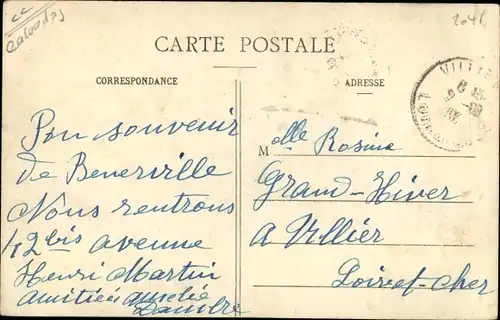 Calvados
2041
CARTE POSTALE
CORRESPONDANCE
ADRESSE
Bon souvenir
de Benerville
Nous rentrons
42 bis avenue
Henri Martin
amitiés amelie
Mlle Rosine
Grand-Hiver
A Villier
Loir et-Cher